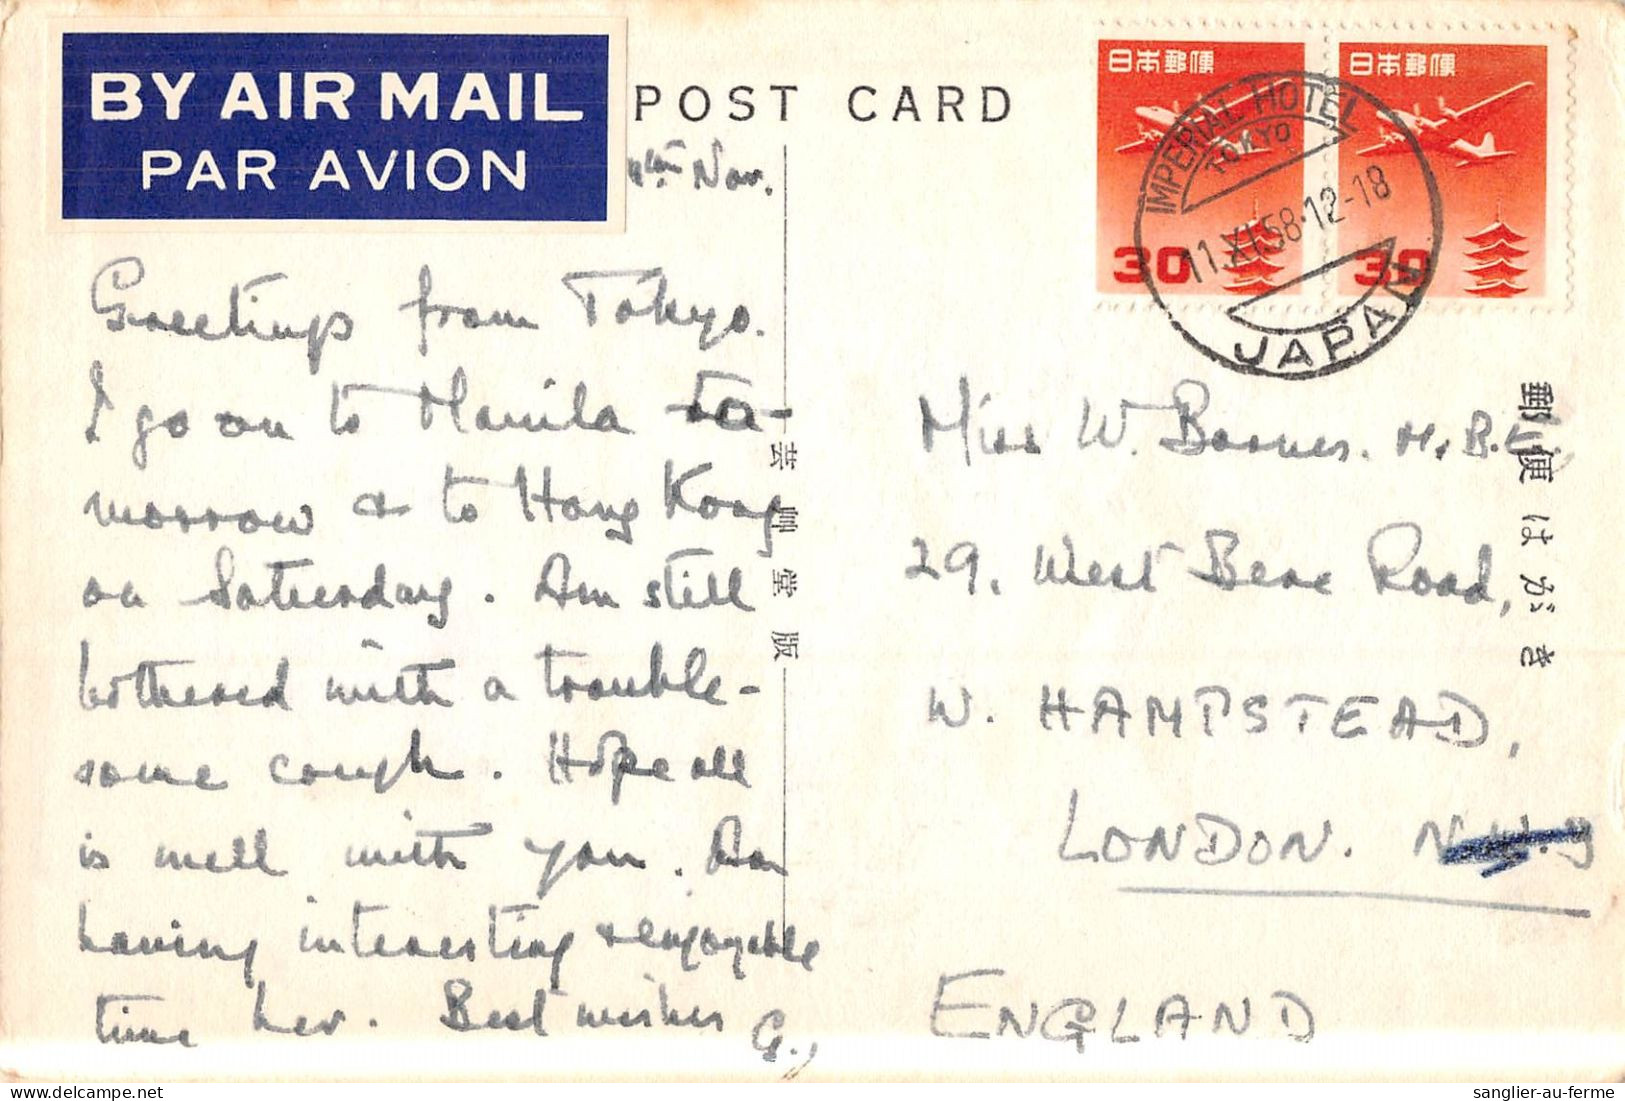 BY AIR MAIL
PAR AVION
POST CARD
Nov.
日本郵便
30
日本郵便
30
IMPERIAL HOTEL
TOKYO
11.XI.58.12-18
JAPAN
Greetings from Tokyo.
I go on to Manila to-
morrow & to Hong Kong
on Saturday. Am still
bothered with a trouble-
some cough. Hope all
is well with you. Am
having interesting & enjoyable
time her. Best wishes
G.
芸艸堂版
Miss W. Barnes. M.B.E.
29. West Bere Road,
W. HAMPSTEAD,
LONDON. N.W.
ENGLAND
郵便はがき
sanglier-au-ferme